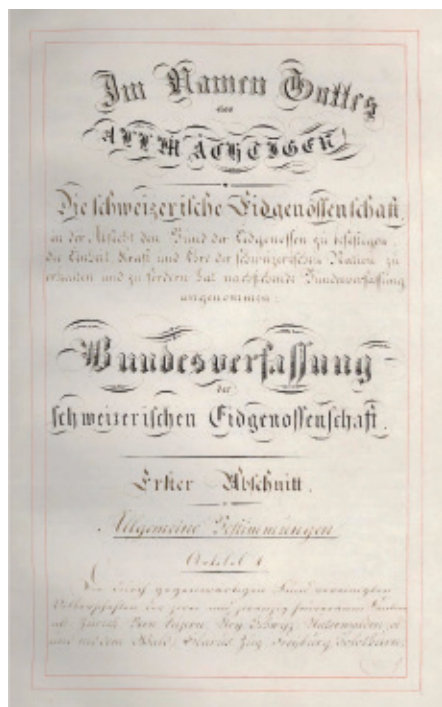 Im Namen Gottes
des
ALLMÄCHTIGEN!
Die schweizerische Eidgenossenschaft,
in der Absicht, den Bund der Eidgenossen zu befestigen,
die Einheit, Kraft und Ehre der schweizerischen Nation zu
erhalten und zu fördern, hat nachstehende Bundesverfassung
angenommen:
Bundesverfassung
der
schweizerischen Eidgenossenschaft.
Erster Abschnitt.
Allgemeine Bestimmungen
Artikel 1
Die durch gegenwärtigen Bund vereinigten
Völkerschaften der zwei und zwanzig souveränen Kantone
als: Zürich, Bern, Luzern, Ury, Schwyz, Unterwalden, ob
und nid dem Wald, Glarus, Zug, Freyburg, Solothurn,